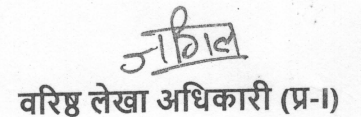 वरिष्ठ लेखा अधिकारी (प्र-I)